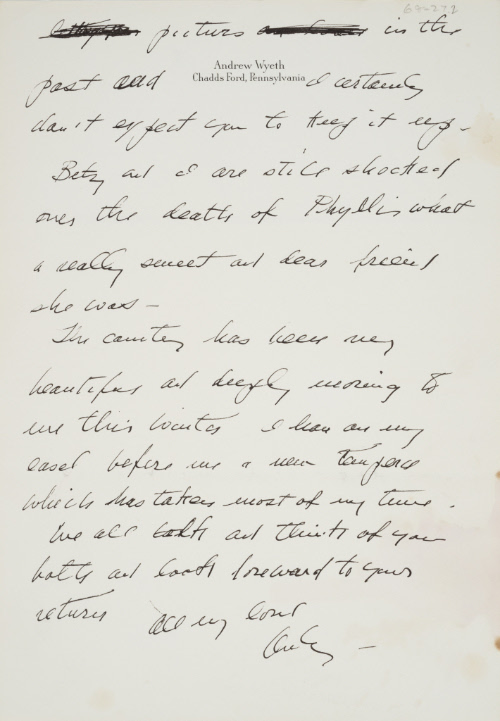 picture in the
Andrew Wyeth
Chadds Ford, Pennsylvania
past and I certainly
don't expect you to keep it up –
Betsy and I are still shocked
over the death of Phyllis what
a really sweet and dear friend
she was –
The country has been very
beautiful and deeply moving to
me this winter I have on my
easel before me a new tempera
which has taken most of my time.
We all talk and think of you
both and look foreward to your
return
All my love
Andy –